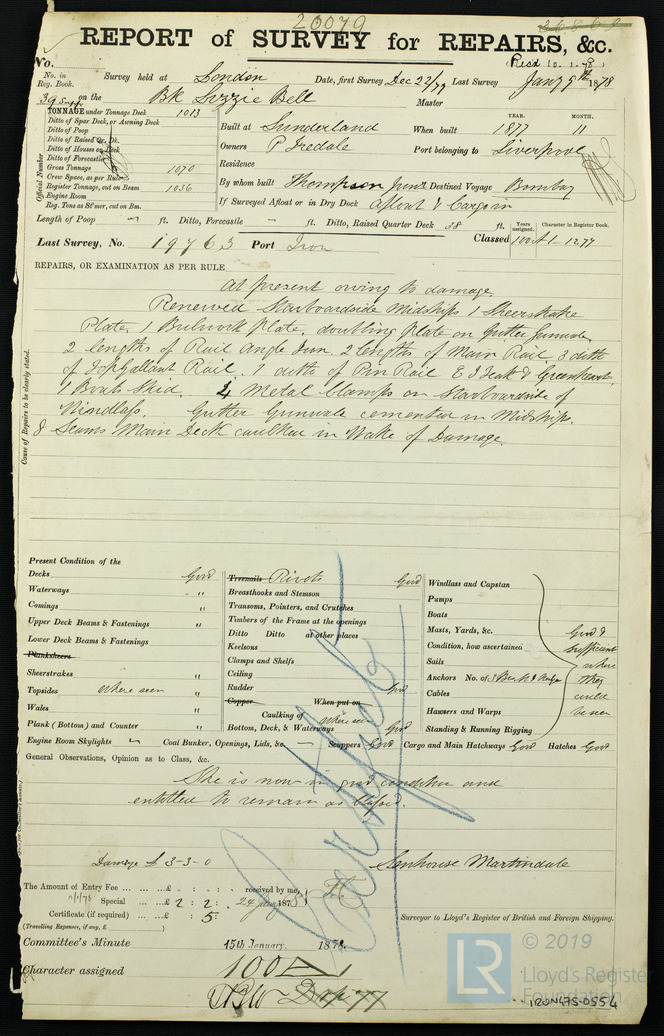 20079
REPORT of SURVEY for REPAIRS, &c.
No.
Recd 10.1.78
No. in Reg. Book. Survey held at London Date, first Survey Dec 22/77 Last Survey Jany 9th 1878
39 Supp on the Bk Lizzie Bell Master
TONNAGE under Tonnage Deck 1013
Ditto of Spar Deck, or Awning Deck
Ditto of Poop
Ditto of Raised Qr. Dk.
Ditto of Houses on Deck
Ditto of Forecastle
Gross Tonnage 1070
Crew Space, as per Rule
Register Tonnage, cut on Beam 1036
Engine Room
Reg. Tons as St'mer, cut on Bm.
Official Number
YEAR. MONTH.
Built at Sunderland When built 1877 11
Owners P Iredale Port belonging to Liverpool
Residence
By whom built Thompson Junr Destined Voyage Bombay
If Surveyed Afloat or in Dry Dock Afloat & Cargo in
Length of Poop ft. Ditto, Forecastle ft. Ditto, Raised Quarter Deck 38 ft.
Years assigned. Character in Register Book.
Last Survey, No. 19763 Port Iron Classed 100 A 1 - 12.77
REPAIRS, OR EXAMINATION AS PER RULE
At present owing to damage
Renewed Starboardside Midships 1 Sheerstrake
Plate, 1 Bulwork Plate, doubling plate on Gutter Gunwale
2 lengths of Rail Angle Iron, 2 lengths of Main Rail, 3 ditto
of TopGallant Rail, 1 ditto of Pin Rail E I Teak & Greenheart
1 Boats Skid, 4 Metal Clamps on Starboardside of
Windlass. Gutter Gunwale cemented in Midships.
8 Seams Main Deck caulked in Wake of Damage.
Cause of Repairs to be clearly stated.
Present Condition of the
Decks Good
Waterways "
Comings "
Upper Deck Beams & Fastenings "
Lower Deck Beams & Fastenings
Planksheers
Sheerstrakes "
Topsides where seen "
Wales "
Plank (Bottom) and Counter "
Treenails Rivets Good
Breasthooks and Stemson
Transoms, Pointers, and Crutches
Timbers of the Frame at the openings
Ditto Ditto at other places
Keelsons
Clamps and Shelfs
Ceiling
Rudder Good
Copper When put on
Caulking of where seen
Bottom, Deck, & Waterways Good
Windlass and Capstan
Pumps
Boats
Masts, Yards, &c.
Condition, how ascertained
Sails
Anchors No. of 3 Bow
Cables
Hawsers and Warps
Standing & Running Rigging
Good &
Sufficient
where
they
could
be seen
Engine Room Skylights Coal Bunker, Openings, Lids, &c. Scuppers Good Cargo and Main Hatchways Good Hatches Good
General Observations, Opinion as to Class, &c.
She is now in good condition and
entitled to remain as Classed.
Certificate
Damage £ 3-3-0
Senhouse Martindale
The Amount of Entry Fee £ : : received by me,
Special £ 2 : 2 : 24 Jany 1878
Certificate (if required) £ : 5 :
(Travelling Expenses, if any, £ )
Surveyor to Lloyd's Register of British and Foreign Shipping.
Committee's Minute 15th January. 1878.
Character assigned 100 A 1
© 2019
LR
Lloyd's Register
Foundation
IRON475-0554